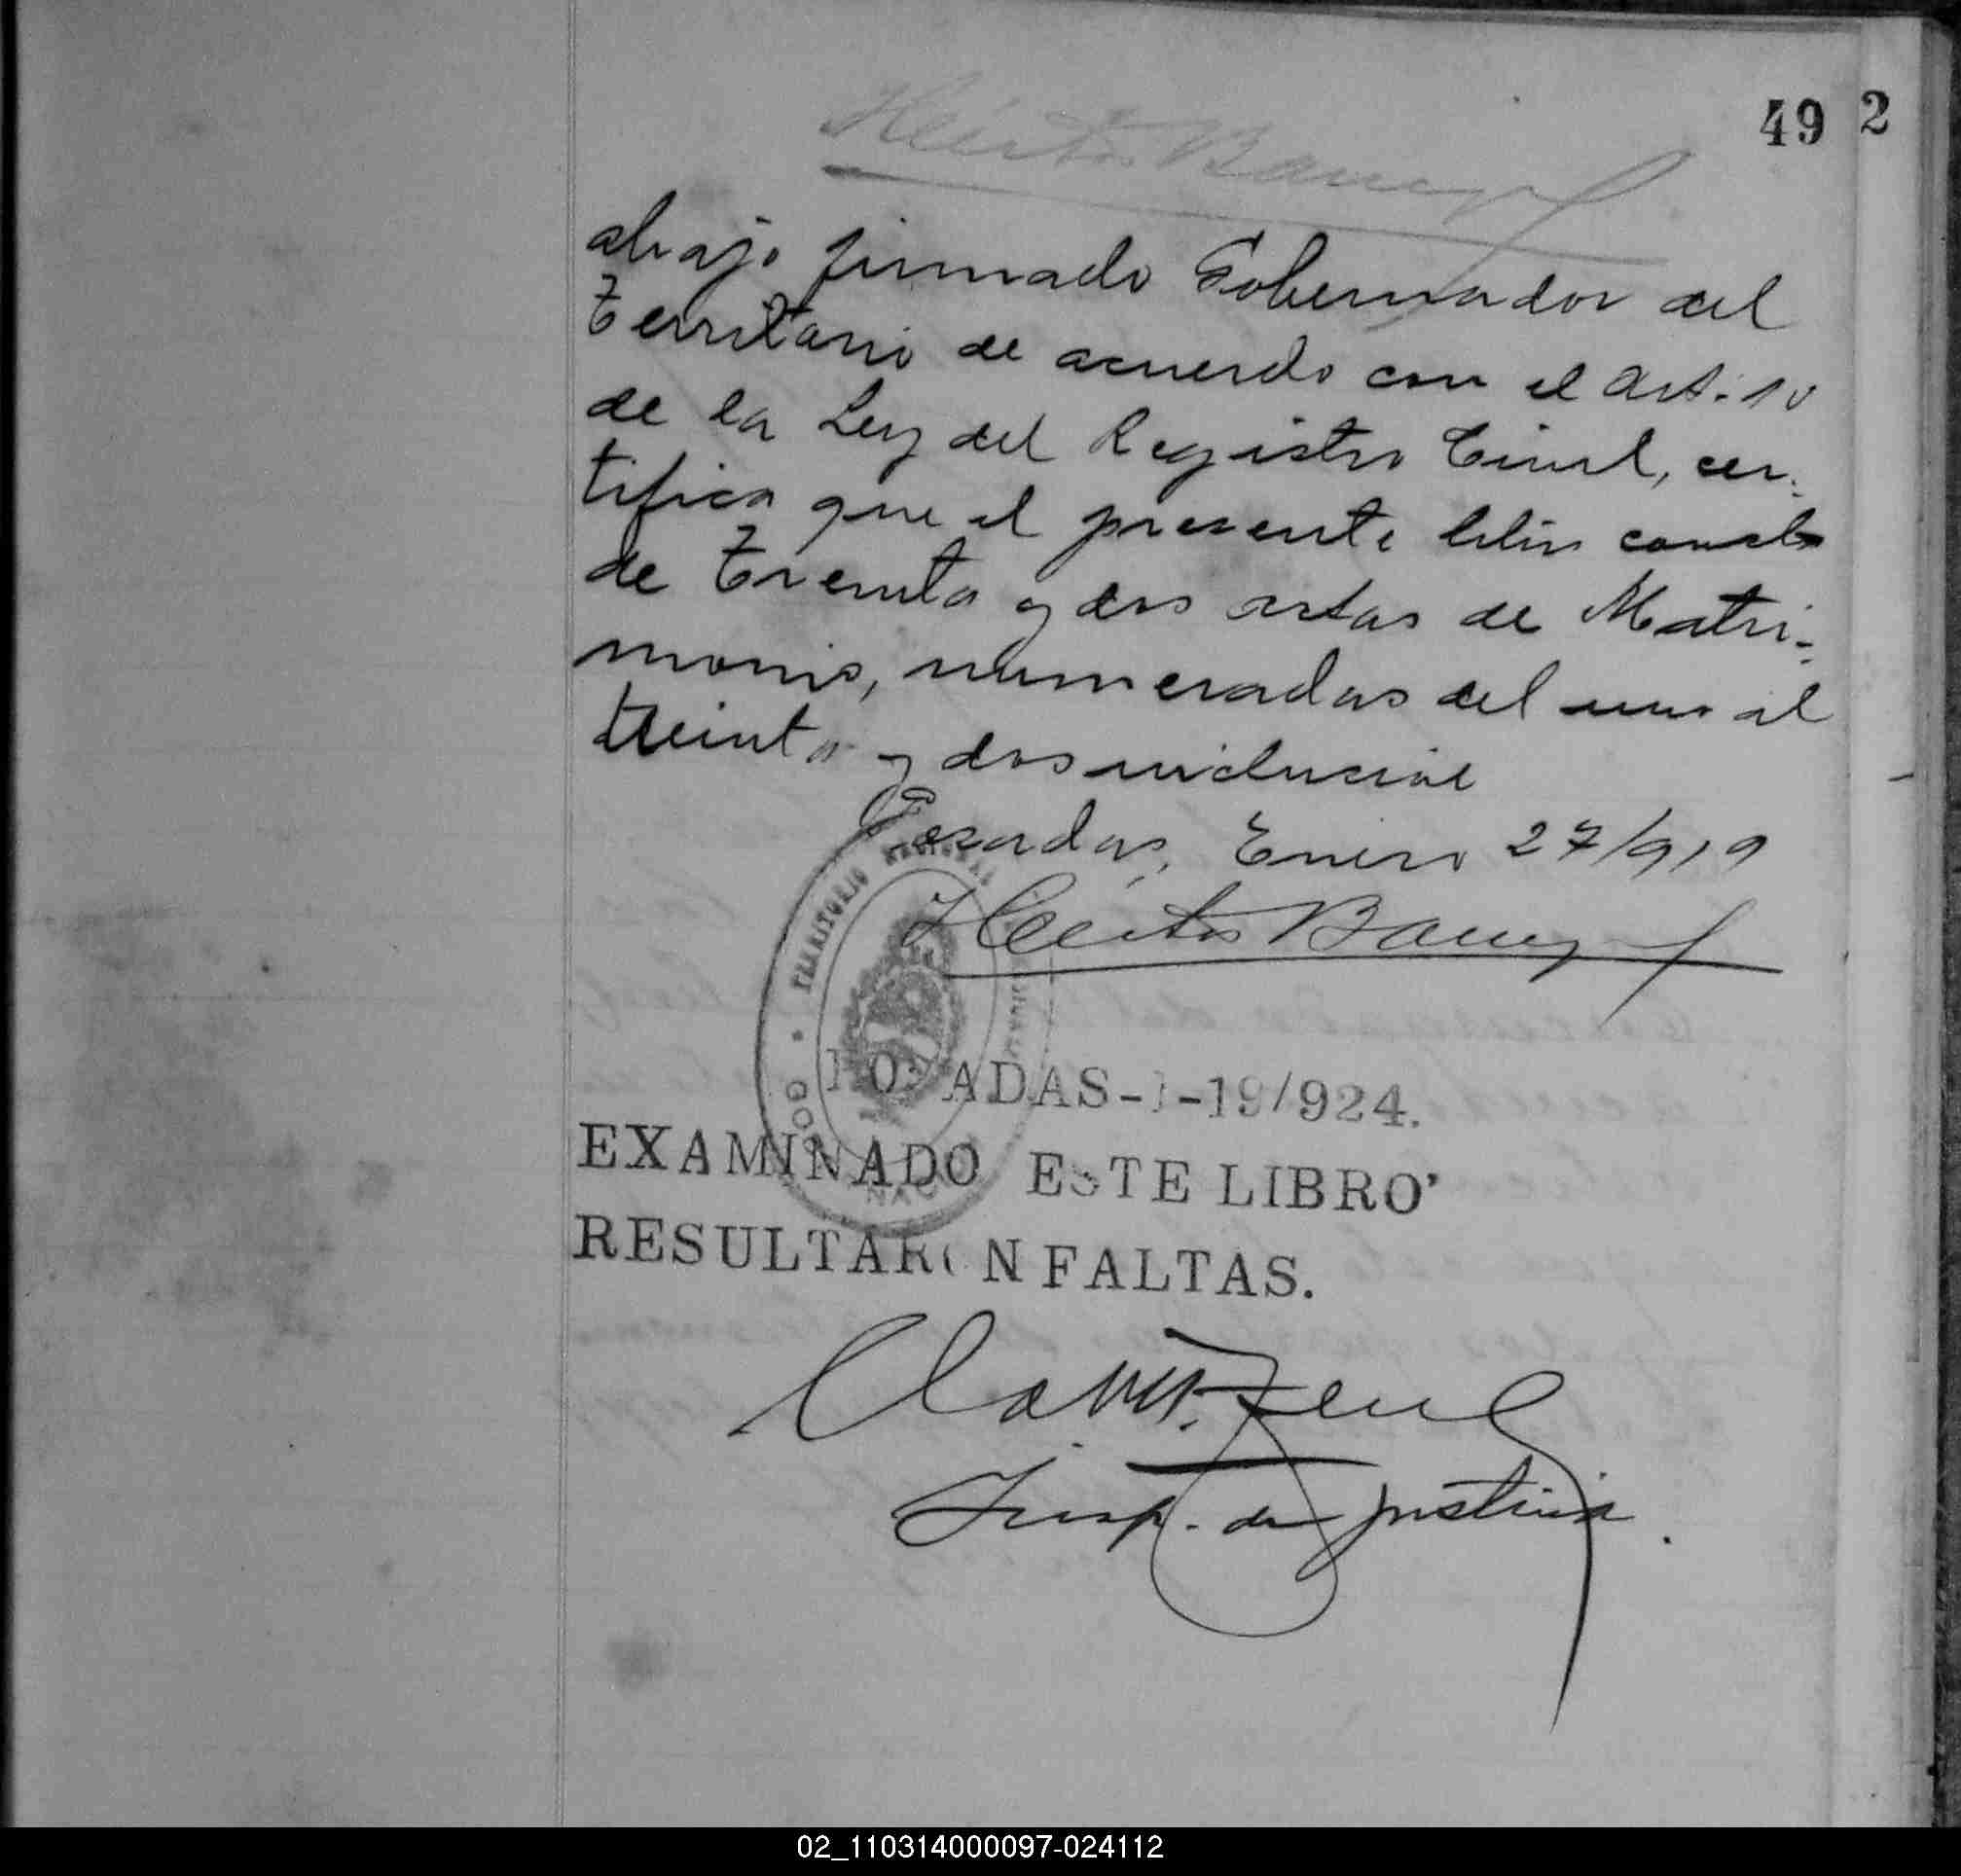 49 2
Héctor Barreyro
abajo firmado Gobernador del
Territorio de acuerdo con el Art. 10
de la Ley del Registro Civil, cer-
tifica que el presente libro consta
de Treinta y dos actas de Matri-
monio, numeradas del uno al
treinta y dos inclusive
Posadas, Enero 27/919
Héctor Barreyro
TERRITORIO NACIONAL
POSADAS-1-19/924.
EXAMINADO ESTE LIBRO
RESULTARON FALTAS.
Insp. de justicia.
02_110314000097-024112